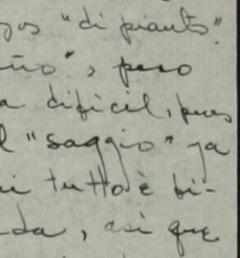 zos "di pianto".
ño", pero
a dificil, pues
l "saggio" ya
tutto è bi-
da, asi que